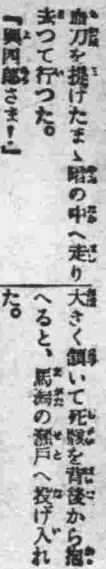 血刀を提げたまゝ暗の中へ走り
去つて行つた。
『與四郎さま！』
大きく頷いて死骸を背後から抱
へると、馬潟の瀬戸へ投げ入れ
た。